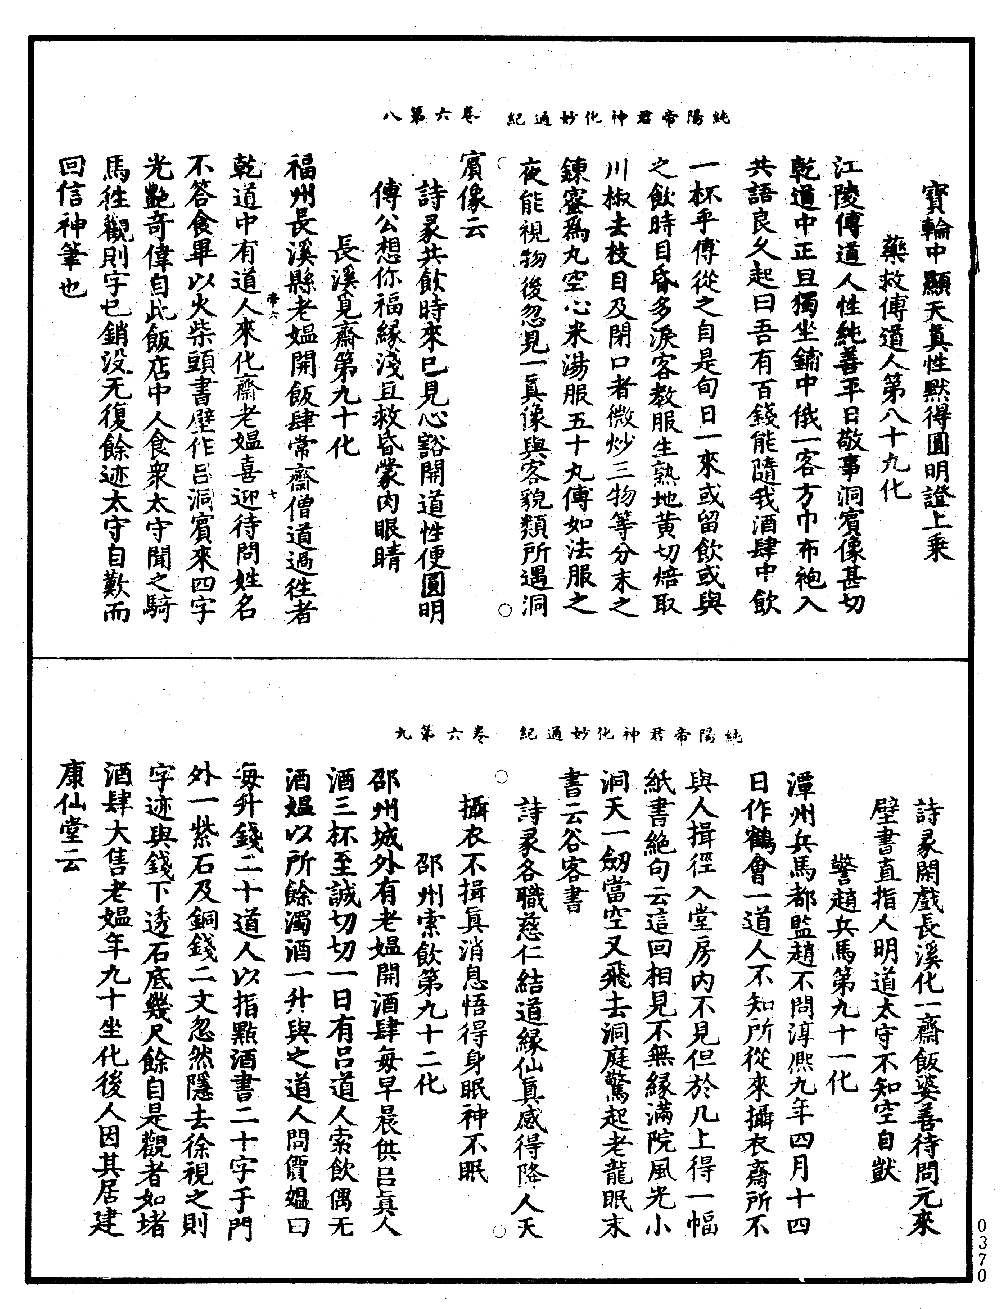 純陽帝君神化妙通紀　卷六第八
寶輪中顯天真性默得圓明證上乘
藥救傅道人第八十九化
江陵傅道人性純善平日敬事洞賓像甚切
乾道中正旦獨坐鋪中俄一客方巾布袍入
共語良久起曰吾有百錢能隨我酒肆中飲
一杯乎傅從之自是旬日一來或留飲或與
之飲時目昏多淚客教服生熟地黄切焙取
川椒去枝目及閉口者微炒三物等分末之
鍊蜜為丸空心米湯服五十丸傅如法服之
夜能視物後忽見一真像與客貌類所遇洞
賓像云
詩彖共飲時來已見心豁開道性便圓明
傅公想你福緣淺且救昏蒙肉眼睛
長溪覓齋第九十化
福州長溪縣老媼開飯肆常齋僧道過徃者
帝六
七
乾道中有道人來化齋老媼喜迎待問姓名
不答食畢以火柴頭書壁作吕洞賓來四字
光艶奇偉自此飯店中人食衆太守聞之騎
馬徃觀則字已銷没无復餘迹太守自歎而
回信神筆也
純陽帝君神化妙通紀　卷六第九
詩彖閑戲長溪化一齋飯婆善待問元來
壁書直指人明道太守不知空自獃
警趙兵馬第九十一化
潭州兵馬都監趙不問淳熙九年四月十四
日作鶴會一道人不知所從來攝衣齋所不
與人揖徑入堂房内不見但於几上得一幅
紙書絶句云這回相見不無緣滿院風光小
洞天一劒當空又飛去洞庭驚起老龍眠末
書云谷客書
詩彖各職慈仁結道緣仙真感得降人天
攝衣不揖真消息悟得身眠神不眠
邵州索飲第九十二化
邵州城外有老媼開酒肆每早晨供吕真人
酒三杯至誠切切一日有吕道人索飲偶无
酒媼以所餘濁酒一升與之道人問價媼曰
每升錢二十道人以指點酒書二十字于門
外一紫石及銅錢二文忽然隱去徐視之則
字迹與錢下透石底幾尺餘自是觀者如堵
酒肆大售老媼年九十坐化後人因其居建
康仙堂云
0370